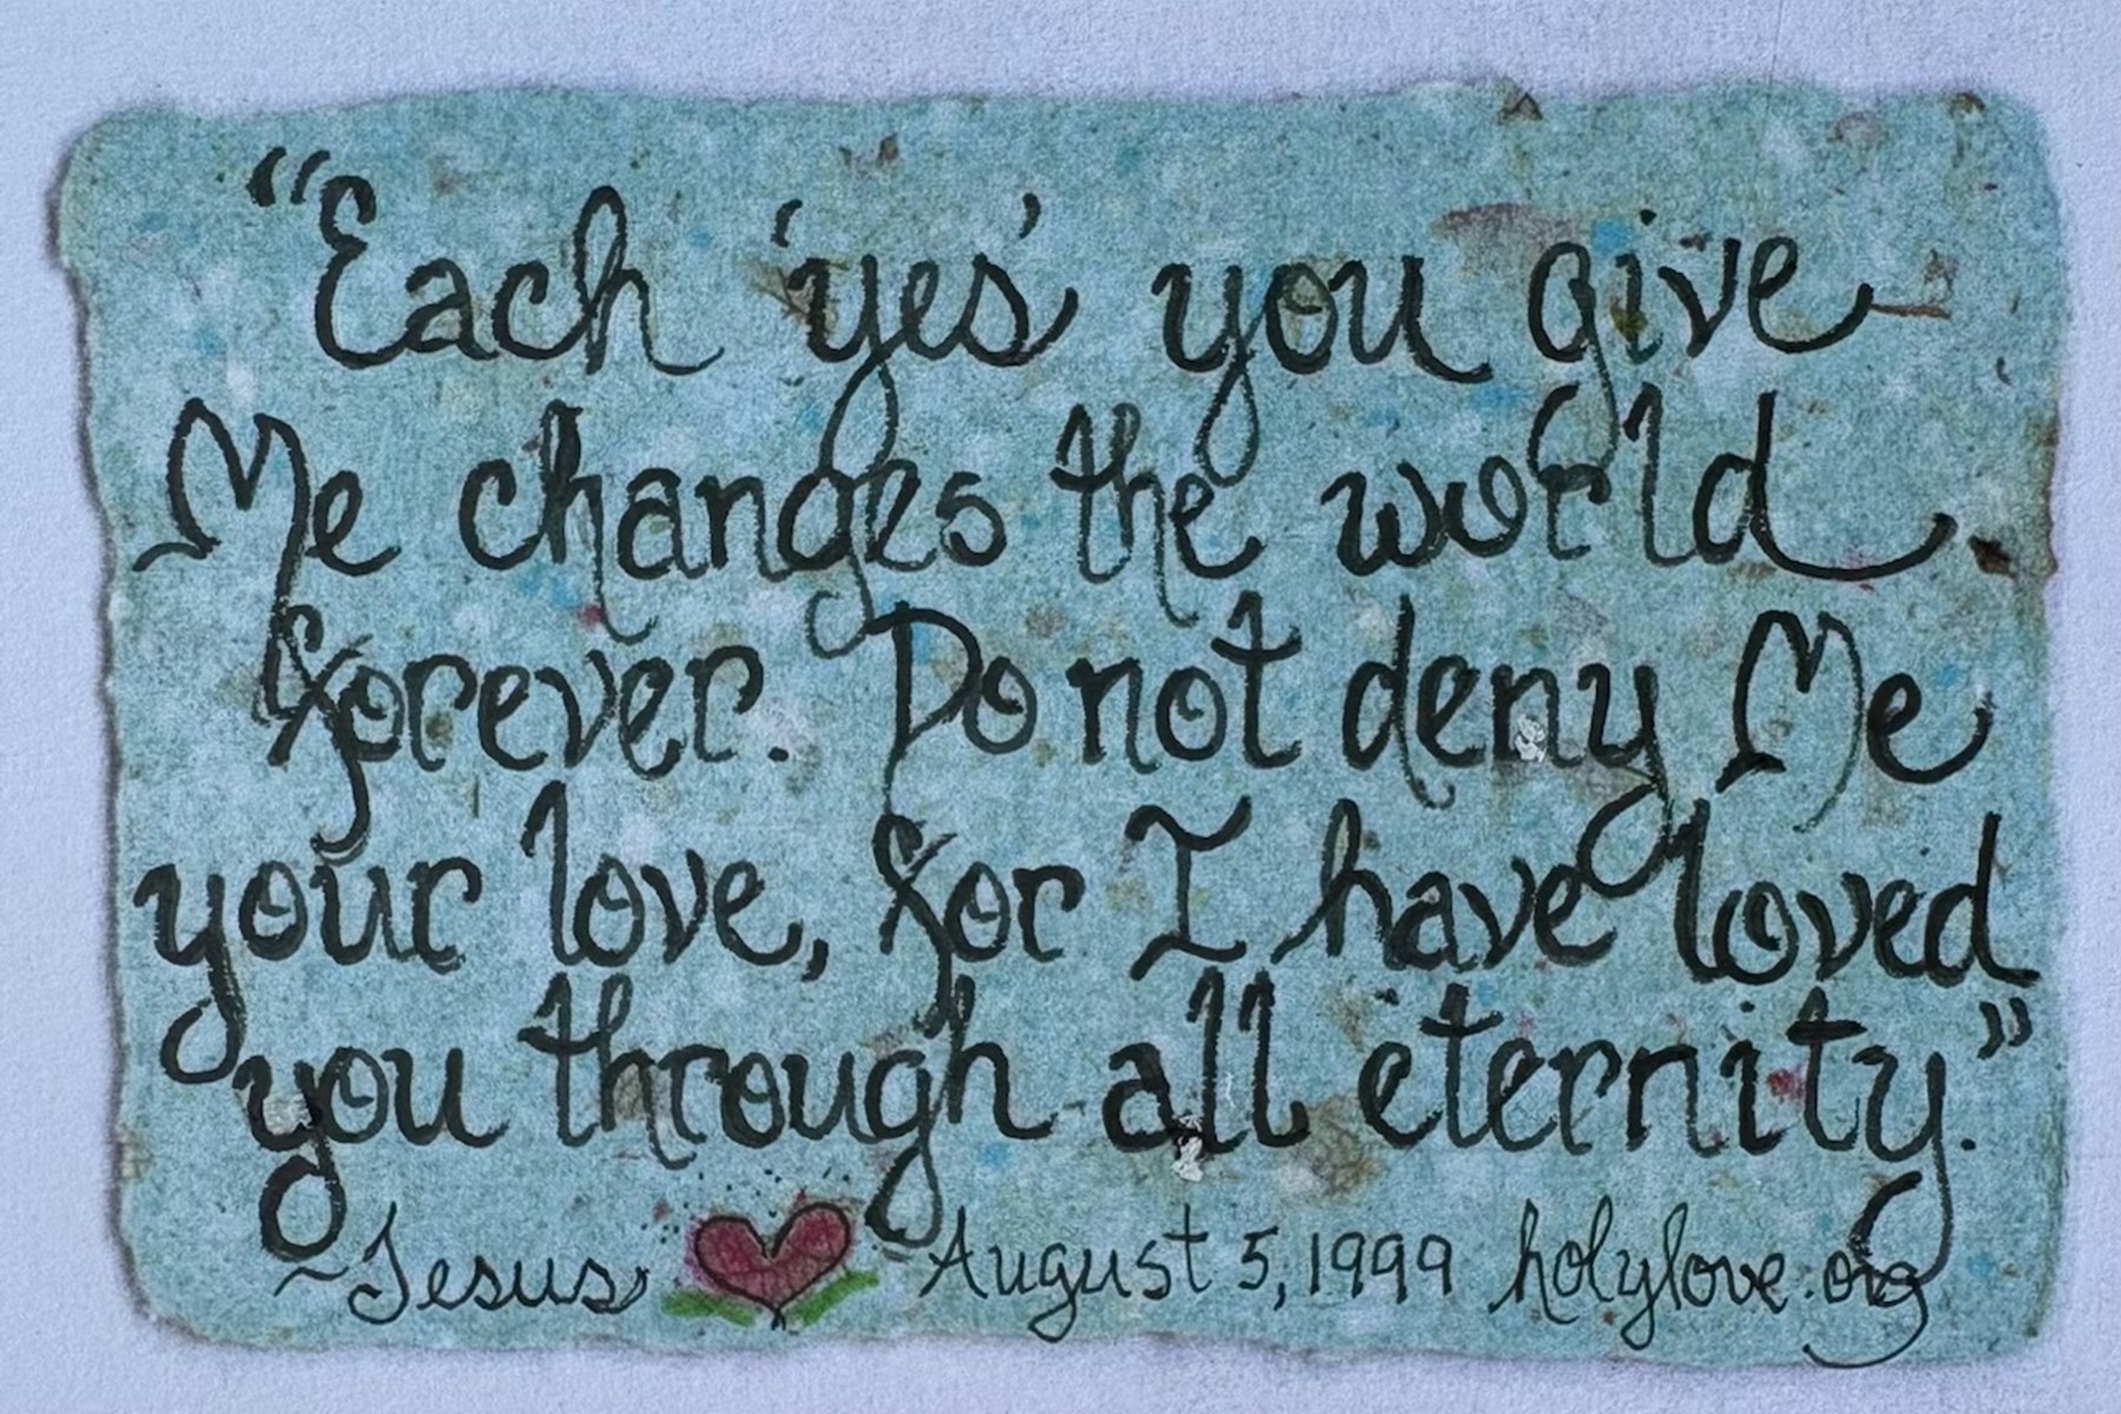 “Each ‘yes’ you give
Me changes the world
forever. Do not deny Me
your love, for I have loved
you through all eternity.”
~Jesus August 5, 1999 holylove.org